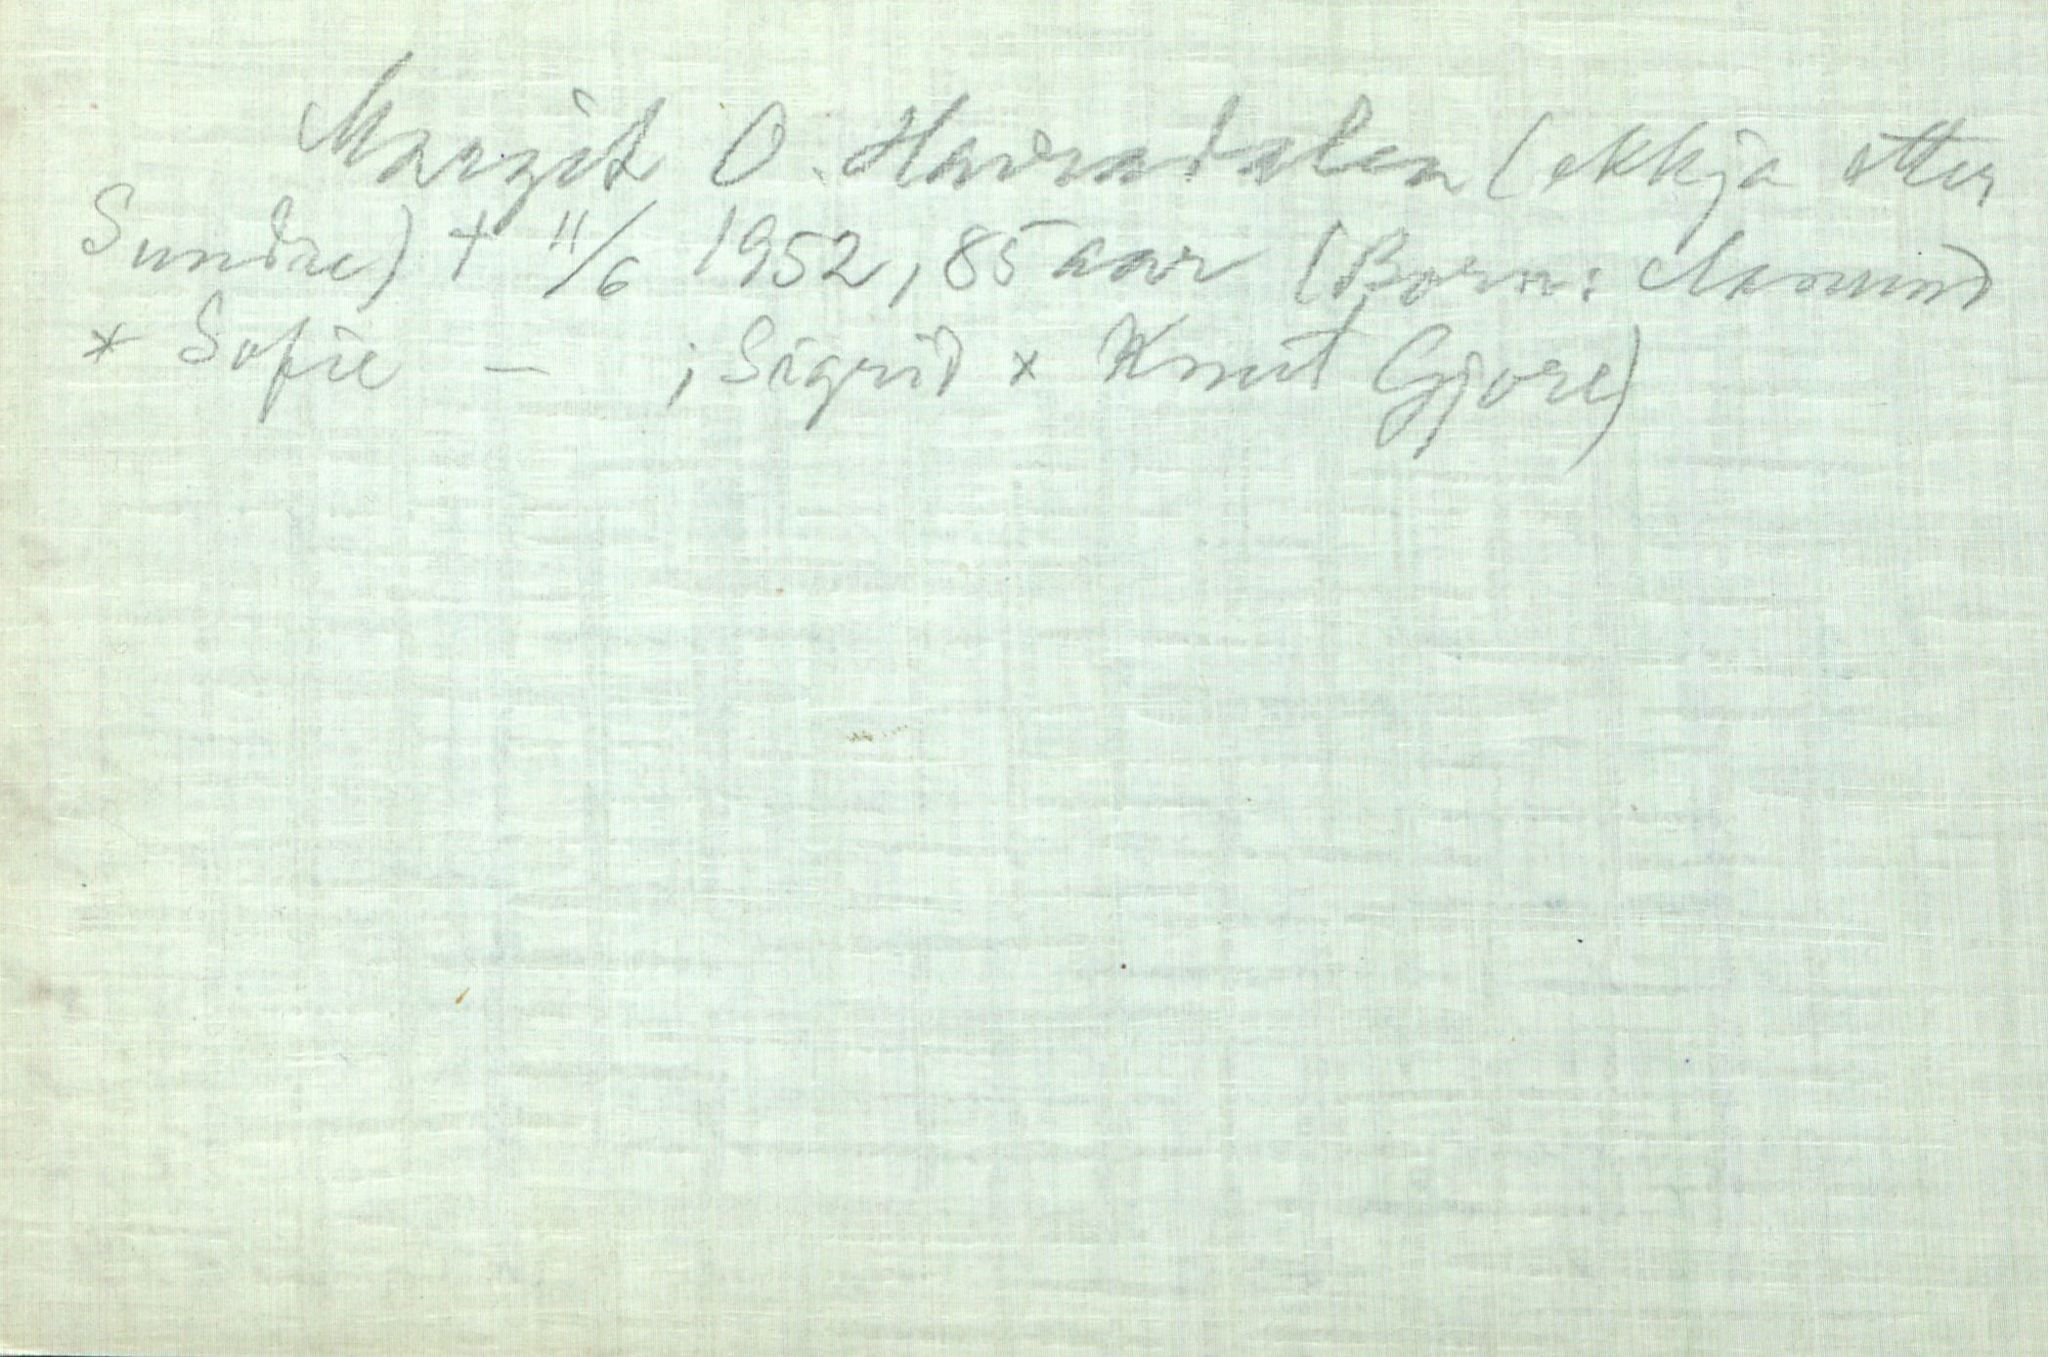 Margit O. Havradalen (ekkja etter
Sundre) + 11/6 1952, 85 aar (Born: Aasmund
x Sofie — ; Sigrid x Knut Gjøre)